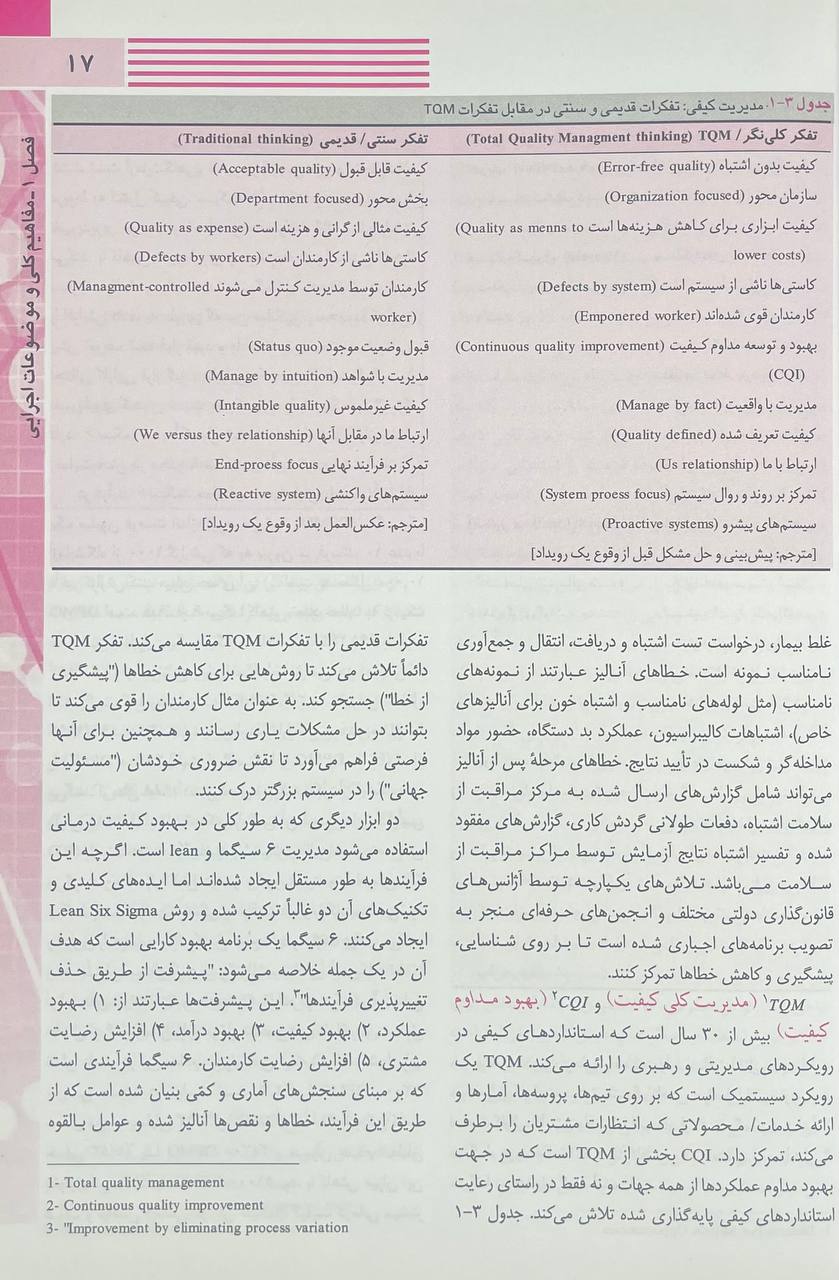 ۱۷
فصل ۱ ـ مفاهیم کلی و موضوعات اجرایی
جدول ۳-۱. مدیریت کیفی: تفکرات قدیمی و سنتی در مقابل تفکرات TQM
تفکر کلی‌نگر/ TQM (Total Quality Managment thinking)
کیفیت بدون اشتباه (Error-free quality)
سازمان محور (Organization focused)
کیفیت ابزاری برای کاهش هزینه‌ها است (Quality as menns to
lower costs)
کاستی‌ها ناشی از سیستم است (Defects by system)
کارمندان قوی شده‌اند (Emponered worker)
بهبود و توسعه مداوم کیفیت (Continuous quality improvement)
(CQI)
مدیریت با واقعیت (Manage by fact)
کیفیت تعریف شده (Quality defined)
ارتباط با ما (Us relationship)
تمرکز بر روند و روال سیستم (System proess focus)
سیستم‌های پیشرو (Proactive systems)
[مترجم: پیش‌بینی و حل مشکل قبل از وقوع یک رویداد]
تفکر سنتی/ قدیمی (Traditional thinking)
کیفیت قابل قبول (Acceptable quality)
بخش محور (Department focused)
کیفیت مثالی از گرانی و هزینه است (Quality as expense)
کاستی‌ها ناشی از کارمندان است (Defects by workers)
کارمندان توسط مدیریت کنترل می‌شوند (Managment-controlled
worker)
قبول وضعیت موجود (Status quo)
مدیریت با شواهد (Manage by intuition)
کیفیت غیرملموس (Intangible quality)
ارتباط ما در مقابل آنها (We versus they relationship)
تمرکز بر فرآیند نهایی End-proess focus
سیستم‌های واکنشی (Reactive system)
[مترجم: عکس‌العمل بعد از وقوع یک رویداد]
غلط بیمار، درخواست تست اشتباه و دریافت، انتقال و جمع‌آوری
نامناسب نمونه است. خطاهای آنالیز عبارتند از نمونه‌های
نامناسب (مثل لوله‌های نامناسب و اشتباه خون برای آنالیزهای
خاص)، اشتباهات کالیبراسیون، عملکرد بد دستگاه، حضور مواد
مداخله‌گر و شکست در تأیید نتایج. خطاهای مرحلهٔ پس از آنالیز
می‌تواند شامل گزارش‌های ارسال شده به مرکز مراقبت از
سلامت اشتباه، دفعات طولانی گردش کاری، گزارش‌های مفقود
شده و تفسیر اشتباه نتایج آزمایش توسط مراکز مراقبت از
سلامت می‌باشد. تلاش‌های یکپارچه توسط آژانس‌های
قانون‌گذاری دولتی مختلف و انجمن‌های حرفه‌ای منجر به
تصویب برنامه‌های اجباری شده است تا بر روی شناسایی،
پیشگیری و کاهش خطاها تمرکز کنند.
TQM۱ (مدیریت کلی کیفیت) و CQI۲ (بهبود مداوم
کیفیت) بیش از ۳۰ سال است که استانداردهای کیفی در
رویکردهای مدیریتی و رهبری را ارائه می‌کند. TQM یک
رویکرد سیستمیک است که بر روی تیم‌ها، پروسه‌ها، آمارها و
ارائه خدمات/ محصولاتی که انتظارات مشتریان را برطرف
می‌کند، تمرکز دارد. CQI بخشی از TQM است که در جهت
بهبود مداوم عملکردها از همه جهات و نه فقط در راستای رعایت
استانداردهای کیفی پایه‌گذاری شده تلاش می‌کند. جدول ۳-۱
تفکرات قدیمی را با تفکرات TQM مقایسه می‌کند. تفکر TQM
دائماً تلاش می‌کند تا روش‌هایی برای کاهش خطاها ("پیشگیری
از خطا") جستجو کند. به عنوان مثال کارمندان را قوی می‌کند تا
بتوانند در حل مشکلات یاری رسانند و همچنین برای آنها
فرصتی فراهم می‌آورد تا نقش ضروری خودشان ("مسئولیت
جهانی") را در سیستم بزرگتر درک کنند.
دو ابزار دیگری که به طور کلی در بهبود کیفیت درمانی
استفاده می‌شود مدیریت ۶ سیگما و lean است. اگرچه این
فرآیندها به طور مستقل ایجاد شده‌اند اما ایده‌های کلیدی و
تکنیک‌های آن دو غالباً ترکیب شده و روش Lean Six Sigma
ایجاد می‌کنند. ۶ سیگما یک برنامه بهبود کارایی است که هدف
آن در یک جمله خلاصه می‌شود: "پیشرفت از طریق حذف
تغییرپذیری فرآیندها"۳. این پیشرفت‌ها عبارتند از: ۱) بهبود
عملکرد، ۲) بهبود کیفیت، ۳) بهبود درآمد، ۴) افزایش رضایت
مشتری، ۵) افزایش رضایت کارمندان. ۶ سیگما فرآیندی است
که بر مبنای سنجش‌های آماری و کمّی بنیان شده است که از
طریق این فرآیند، خطاها و نقص‌ها آنالیز شده و عوامل بالقوه
1- Total quality management
2- Continuous quality improvement
3- "Improvement by eliminating process variation